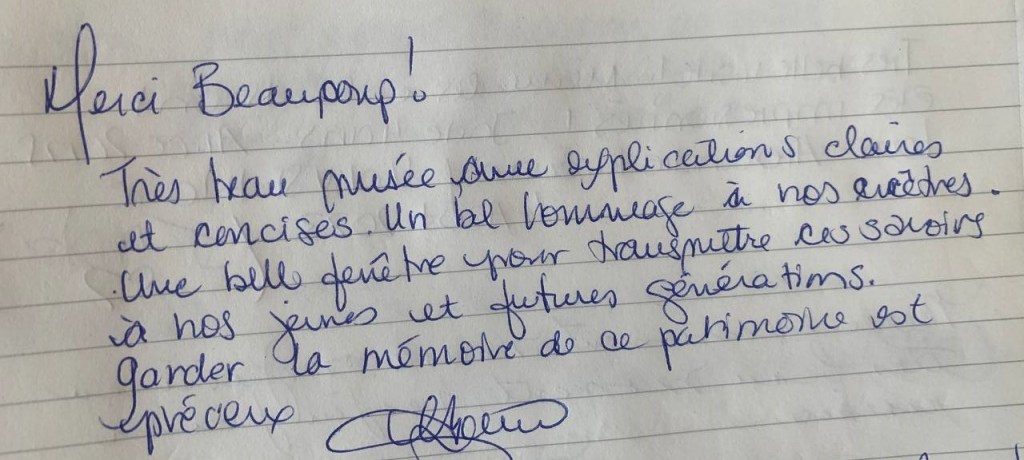 Merci Beaucoup !
Très beau musée, avec explications claires
et concises. Un bel hommage à nos ancêtres.
Une belle fenêtre pour transmettre ces savoirs
à nos jeunes et futures générations.
garder la mémoire de ce patrimoine est
précieux